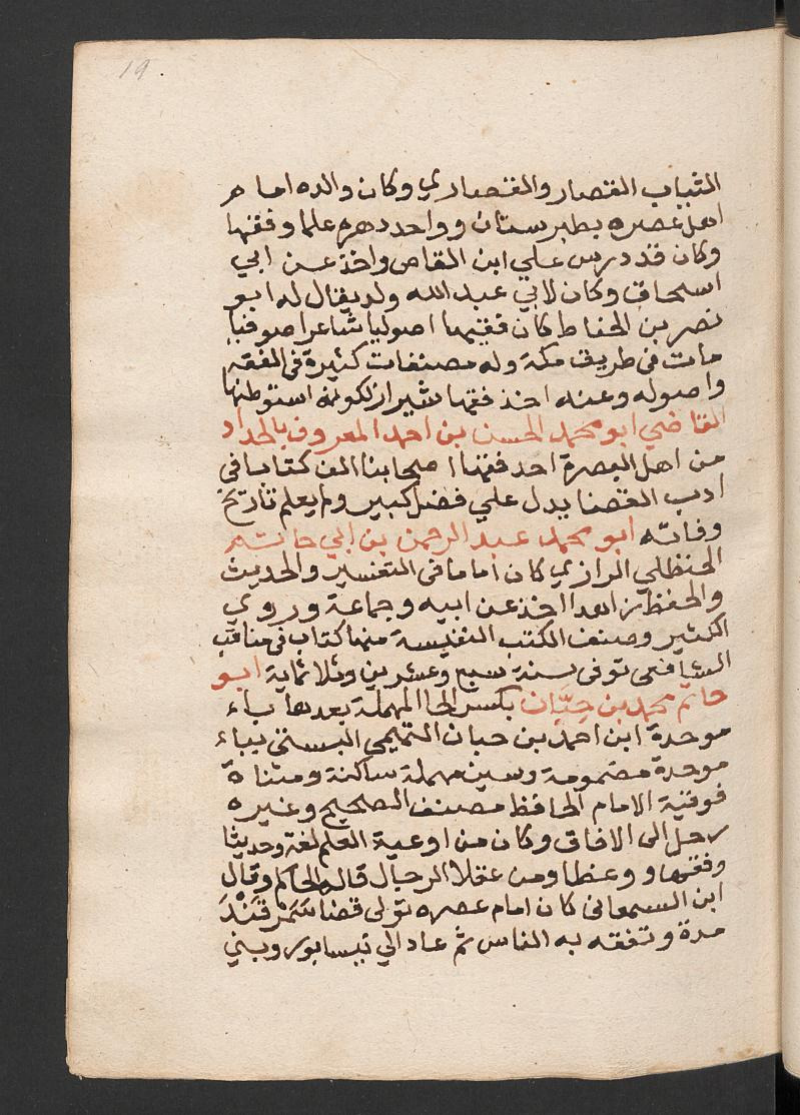 19
الثياب القصار والقصاري وكان والده امام
اهل عصره بطبرستان وواحد دهره علما وفقها
وكان قد درس علي ابن القاص واخذ عن ابي
اسحاق وكان لابي عبد الله ولد يقال له ابو
نصر بن الحناط كان فقيها اصوليا شاعرا صوفيا
مات في طريق مكة وله مصنفات كثيرة في الفقه
واصوله وعنه اخذ فقها شيراز لكونه استوطنها
القاضي ابو محمد الحسن بن احمد المعروف بالحداد
من اهل البصرة احد فقها اصحابنا الف كتابا في
ادب القضا يدل علي فضل كبير ولم يعلم تاريخ
وفاته ابو محمد عبد الرحمن بن ابي حاتم
الحنظلي الرازي كان اماما في التفسير والحديث
والحفظ زاهدا اخذ عن ابيه وجماعة وروي
الكثير وصنف الكتب النفيسة منها كتاب في مناقب
الشافعي توفي سنة سبع وعشرين وثلاثماية ابو
حاتم محمد بن حِبَّان بكسر الحا المهملة بعدها باء
موحدة ابن احمد بن حبان التميمي البستي بباء
موحدة مضمومة وسين مهملة ساكنة ومثناة
فوقية الامام الحافظ مصنف الصحيح وغيره
رحل الى الافاق وكان من اوعية العلم لغة وحديثا
وفقها ووعظا ومن عقلا الرجال قاله الحاكم وقال
ابن السمعاني كان امام عصره تولى قضا سَمَرْقَنْدَ
مدة وتفقه به الناس ثم عاد الي نيسابور وبني